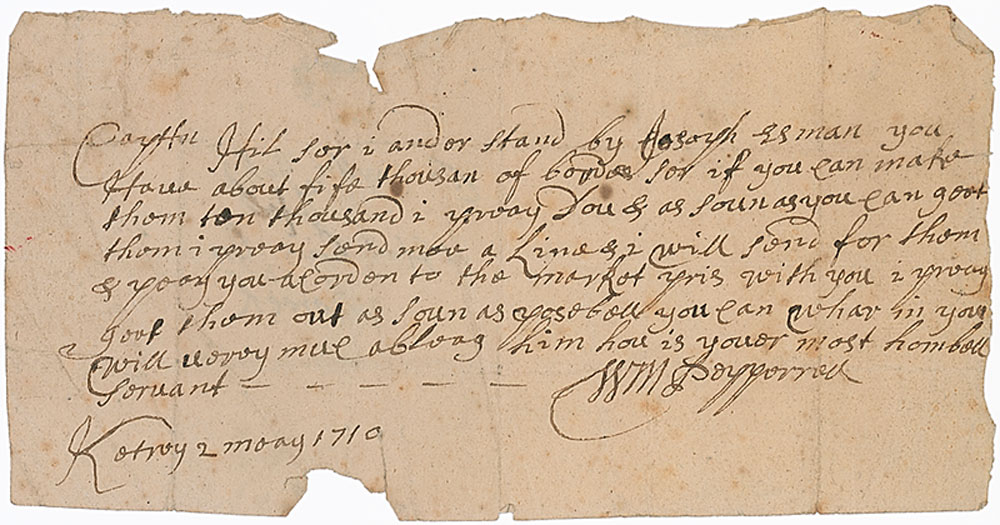 Captn Hil ser i ander stand by Joseph &sman you
Have about fife thousan of bords ser if you Can make
them ten thousand i preay dou & as soun as you Can geet
them i preay send mee a Line & i will send for them
& peay you acorden to the market pris with you i preay
geet them out as soun as posebell you Can whar in you
will verey muc ableag him hou is youer most hombell
servant — — — — —
Wm Pepperrell
Ketrey 2 meay 1710